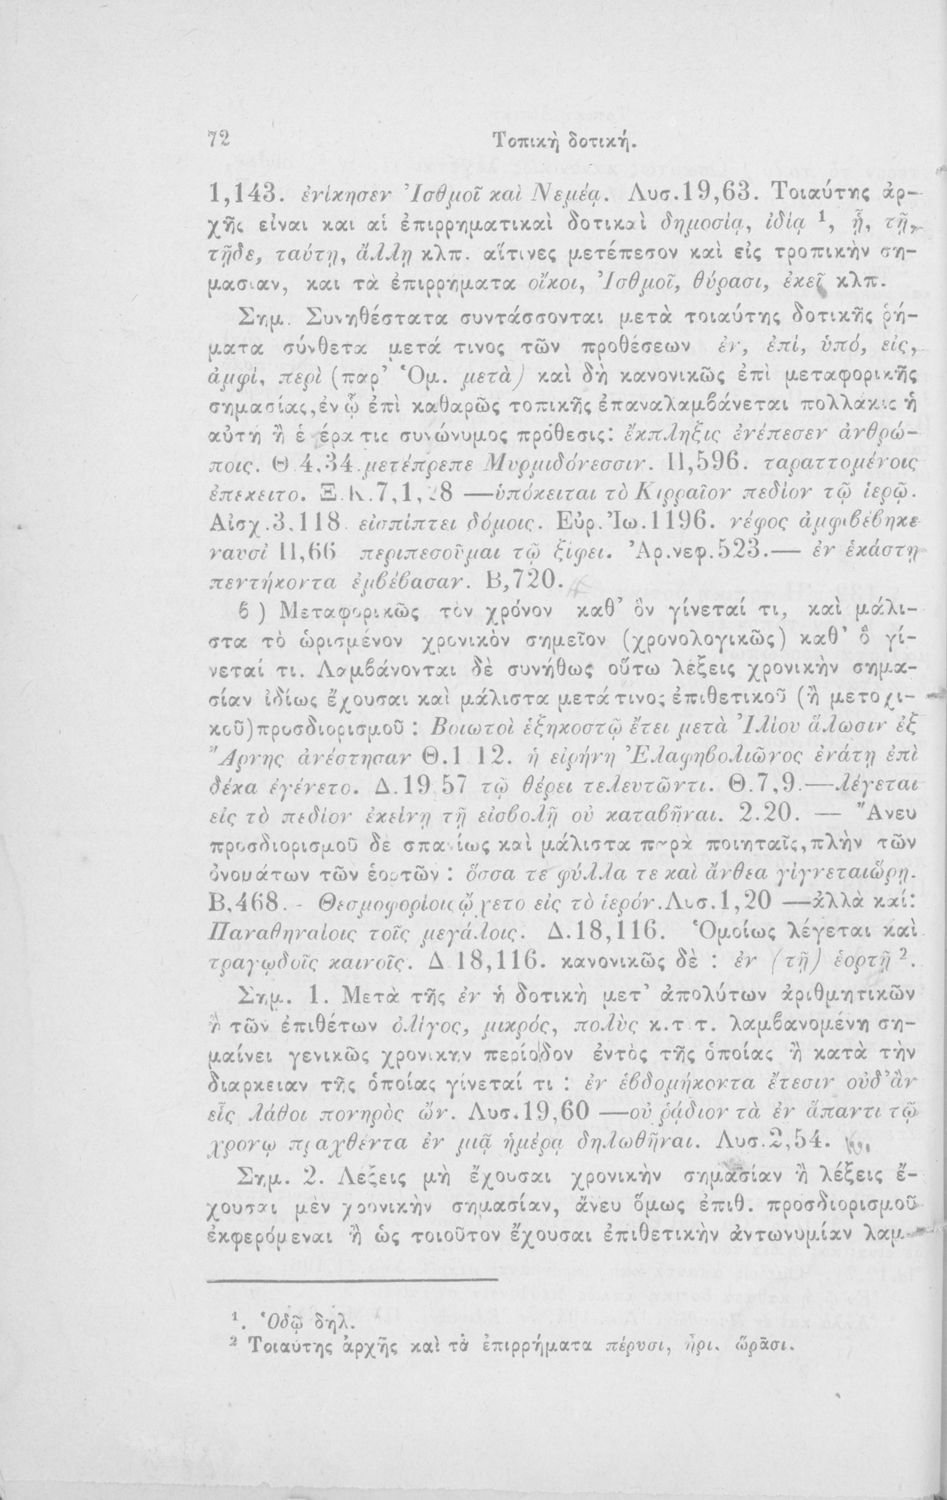 72 Τοπικὴ δοτική.
1,143. ἐνίκησεν Ἰσθμοῖ καὶ Νεμέᾳ. Λυσ.19,63. Τοιαύτης ἀρ-
χῆς εἶναι και αἱ ἐπιρρηματικαὶ δοτικαὶ δημοσίᾳ, ἰδίᾳ ¹, ᾗ, τῇ,
τῇδε, ταύτῃ, ἄλλῃ κλπ. αἵτινες μετέπεσον καὶ εἰς τροπικὴν ση-
μασιαν, και τὰ ἐπιρρήματα οἴκοι, Ἰσθμοῖ, θύρασι, ἐκεῖ κλπ.
Σημ. Συνηθέστατα συντάσσονται μετὰ τοιαύτης δοτικῆς ῥή-
ματα σύνθετα μετά τινος τῶν προθέσεων ἐν, ἐπί, ὑπό, εἰς,
ἀμφί, περὶ (παρ’ Ὁμ. μετὰ) καὶ δὴ κανονικῶς ἐπὶ μεταφορικῆς
σημασίας, ἐν ᾧ ἐπὶ καθαρῶς τοπικῆς ἐπαναλαμβάνεται πολλάκις ἡ
αὐτὴ ἢ ἑτέρα τις συνώνυμος πρόθεσις: ἔκπληξις ἐνέπεσεν ἀνθρώ-
ποις. Θ 4,34. μετέπρεπε Μυρμιδόνεσσιν. Π,596. ταραττομένοις
ἐπεκειτο. Ξ.Κ.7,1,28 —ὑπόκειται τὸ Κιρραῖον πεδίον τῷ ἱερῷ.
Αἰσχ.3,118. εἰσπίπτει δόμοις. Εὐρ. Ἴω.1196. νέφος ἀμφιβέβηκε
ναυσὶ Π,66 περιπεσοῦμαι τῷ ξίφει. Ἀρ.νεφ.523.— ἐν ἑκάστῃ
πεντήκοντα ἐμβέβασαν. Β,720.
β ) Μεταφορικῶς τὸν χρόνον καθ’ ὃν γίνεταί τι, καὶ μάλι-
στα τὸ ὡρισμένον χρονικὸν σημεῖον (χρονολογικῶς) καθ’ ὃ γί-
νεταί τι. Λαμβάνονται δὲ συνήθως οὕτω λέξεις χρονικὴν σημα-
σίαν ἰδίως ἔχουσαι καὶ μάλιστα μετά τινος ἐπιθετικοῦ (ἢ μετοχι-
κοῦ) προσδιορισμοῦ : Βοιωτοὶ ἑξηκοστῷ ἔτει μετὰ Ἰλίου ἅλωσιν ἐξ
Ἄρνης ἀνέστησαν Θ.1 12. ἡ εἰρήνη Ἐλαφηβολιῶνος ἐνάτῃ ἐπὶ
δέκα ἐγένετο. Δ.19 57 τῷ θέρει τελευτῶντι. Θ.7,9.—λέγεται
εἰς τὸ πεδίον ἐκείνῃ τῇ εἰσβολῇ οὐ καταβῆναι. 2.20. — Ἄνευ
προσδιορισμοῦ δὲ σπανίως καὶ μάλιστα παρὰ ποιηταῖς, πλὴν τῶν
ὀνομάτων τῶν ἑορτῶν : ὅσσα τε φύλλα τε καὶ ἄνθεα γίγνεται ὥρῃ.
Β,468. - Θεσμοφορίοις ᾤχετο εἰς τὸ ἱερόν. Λυσ.1,20 —ἀλλὰ καί:
Παναθηναίοις τοῖς μεγάλοις. Δ.18,116. Ὁμοίως λέγεται καὶ
τραγῳδοῖς καινοῖς. Δ 18,116. κανονικῶς δὲ : ἐν (τῇ) ἑορτῇ ².
Σημ. 1. Μετὰ τῆς ἐν ἡ δοτικὴ μετ’ ἀπολύτων ἀριθμητικῶν
ἢ τῶν ἐπιθέτων ὀλίγος, μικρός, πολὺς κ.τ τ. λαμβανομένη ση-
μαίνει γενικῶς χρονικην περίοδον ἐντὸς τῆς ὁποίας ἢ κατὰ τὴν
διαρκειαν τῆς ὁποίας γίνεταί τι : ἐν ἑβδομήκοντα ἔτεσιν οὐδ’ ἂν
εἷς λάθοι πονηρὸς ὤν. Λυσ.19,60 —οὐ ῥᾴδιον τὰ ἐν ἅπαντι τῷ
χρονῳ πραχθέντα ἐν μιᾷ ἡμέρᾳ δηλωθῆναι. Λυσ.2,54.
Σημ. 2. Λεξεις μὴ ἔχουσαι χρονικὴν σημασίαν ἢ λέξεις ἔ-
χουσαι μὲν χρονικὴν σημασίαν, ἄνευ ὅμως ἐπιθ. προσδιορισμοῦ
ἐκφερόμεναι ἢ ὡς τοιοῦτον ἔχουσαι ἐπιθετικὴν ἀντωνυμίαν λαμ-
¹. Ὁδῷ δηλ.
² Τοιαύτης ἀρχῆς καὶ τὰ ἐπιρρήματα πέρυσι, ἦρι, ὥρᾶσι.